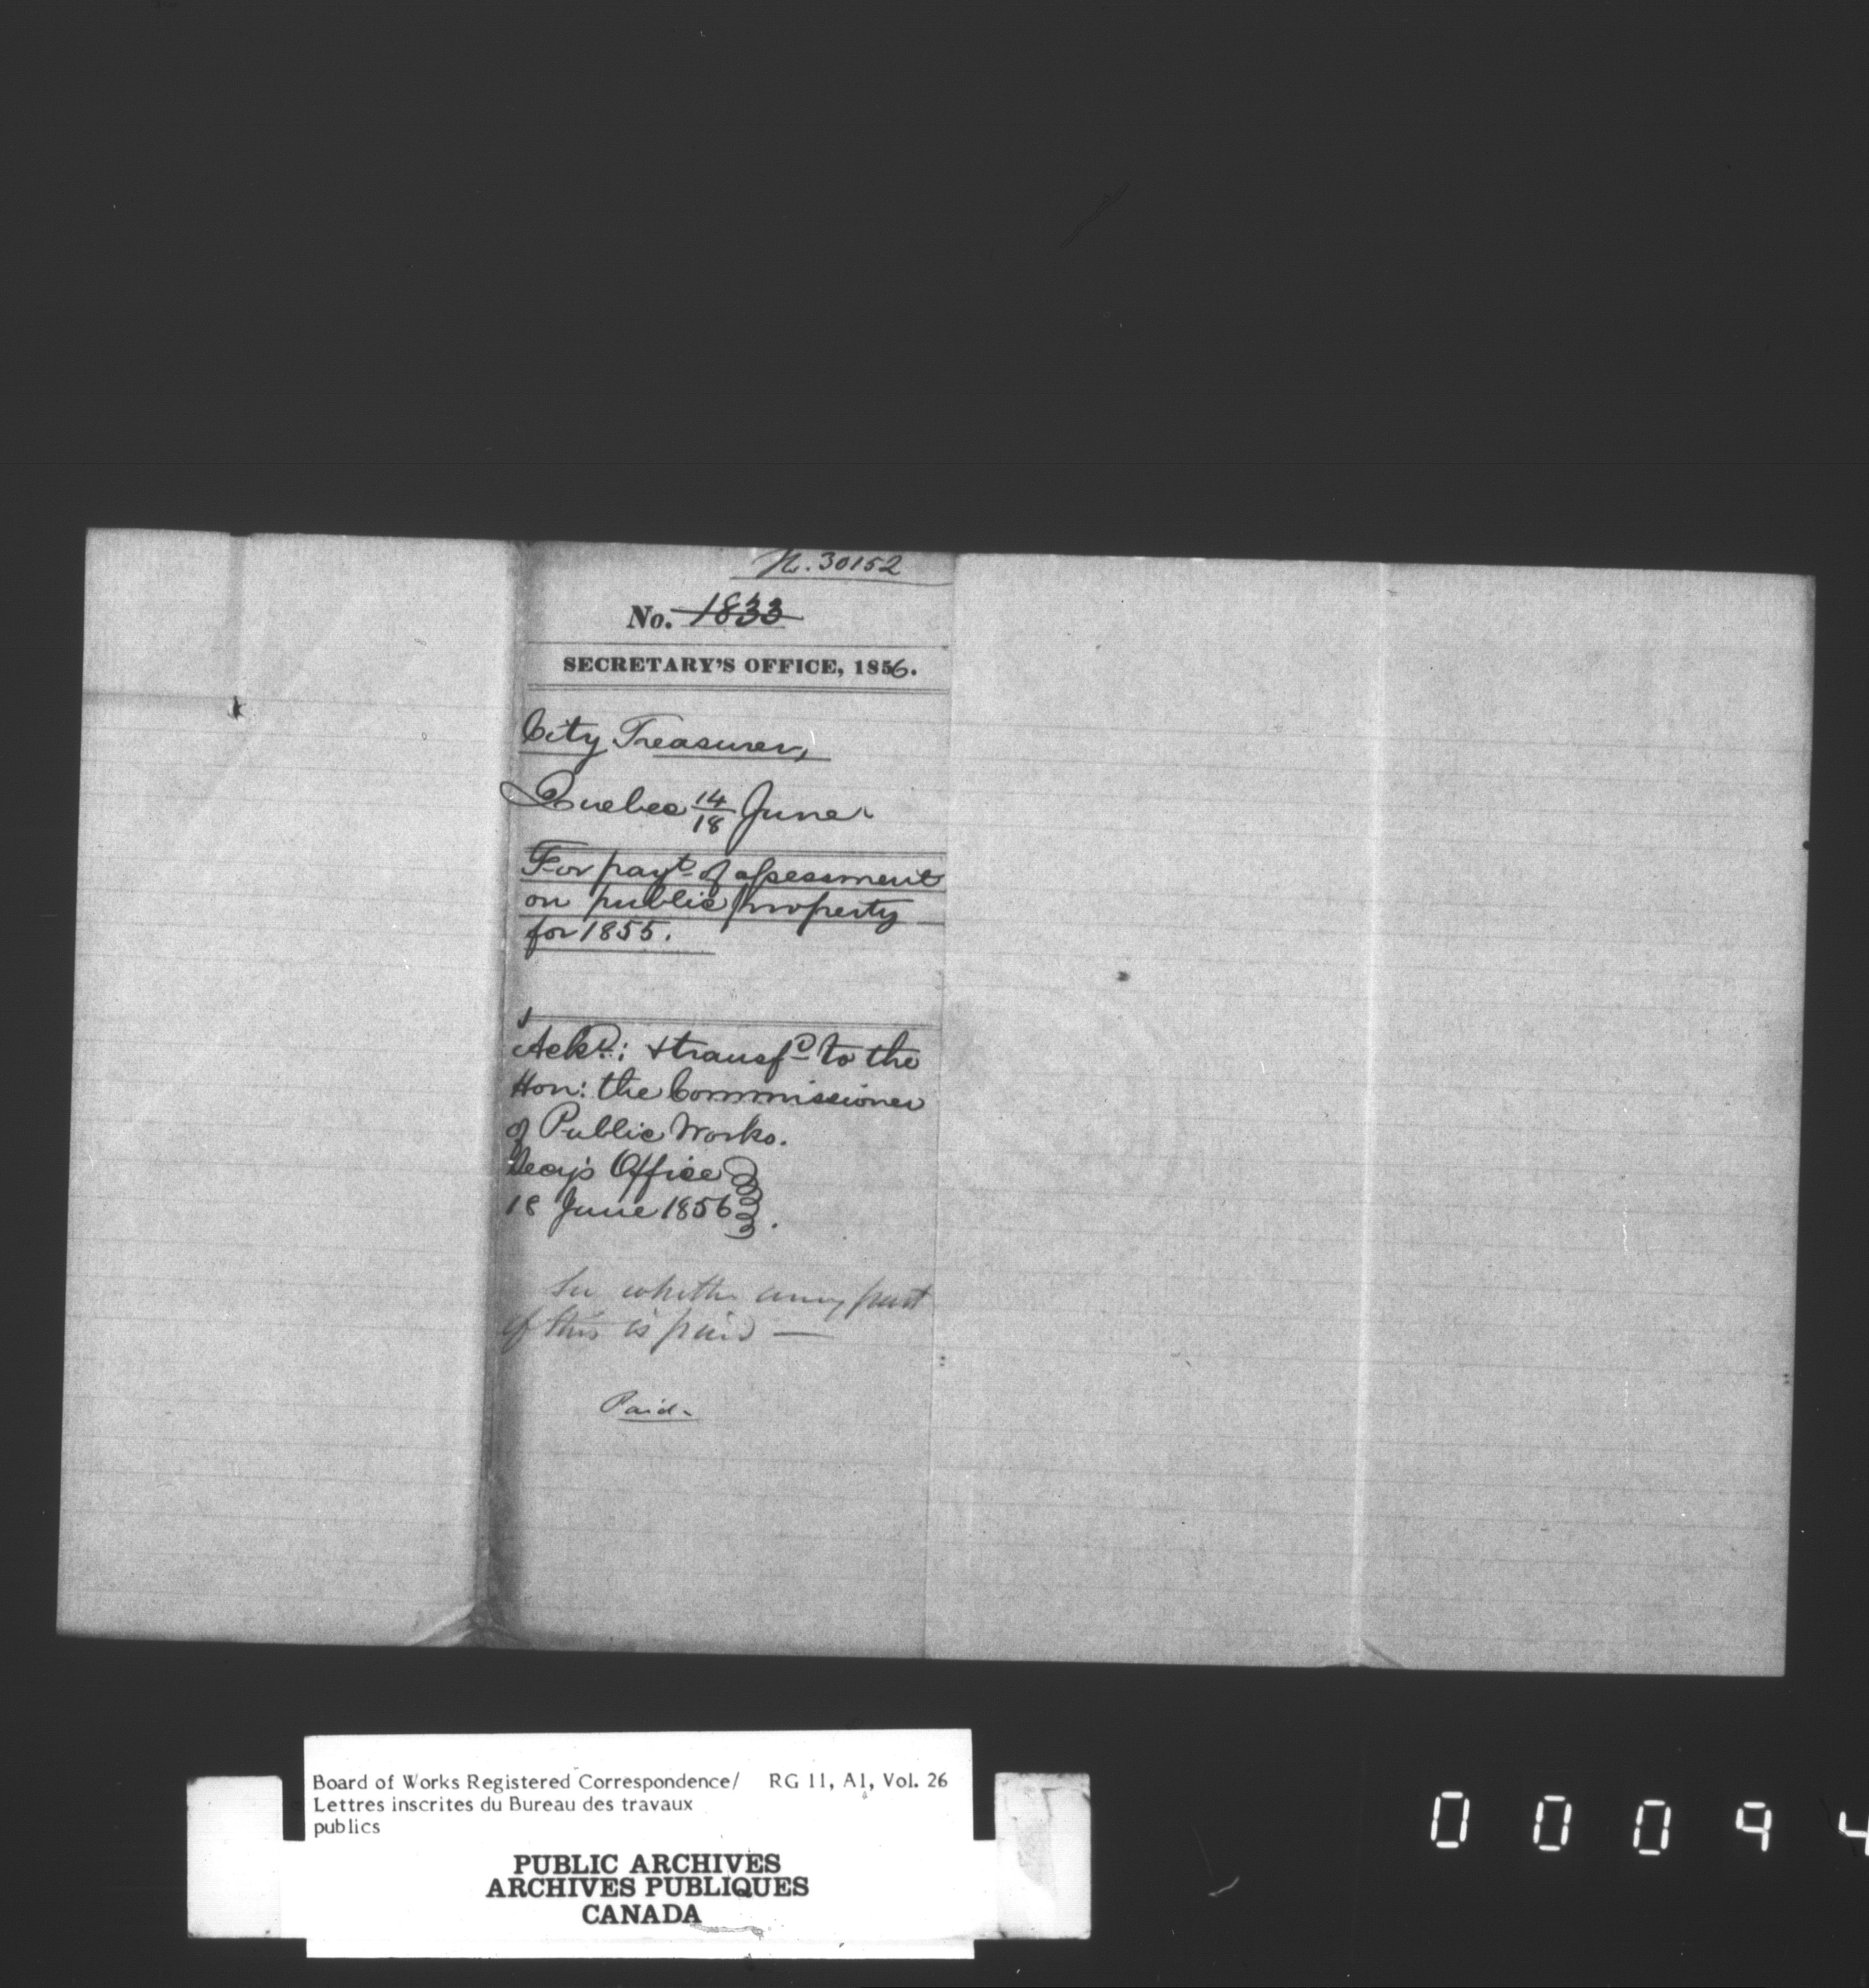 N. 30152
No. 1833
SECRETARY'S OFFICE, 1856.
City Treasurer,
Quebec 14/18 June
For payt of assessment
on public property
for 1855.
Ackd: & transfd to the
Hon: the Commissioner
of Public Works.
Secy's Office
18 June 1856.
See whether any part
of this is paid —
Paid.
Board of Works Registered Correspondence/ RG 11, A1, Vol. 26
Lettres inscrites du Bureau des travaux
publics
PUBLIC ARCHIVES
ARCHIVES PUBLIQUES
CANADA
0 0 0 9 4